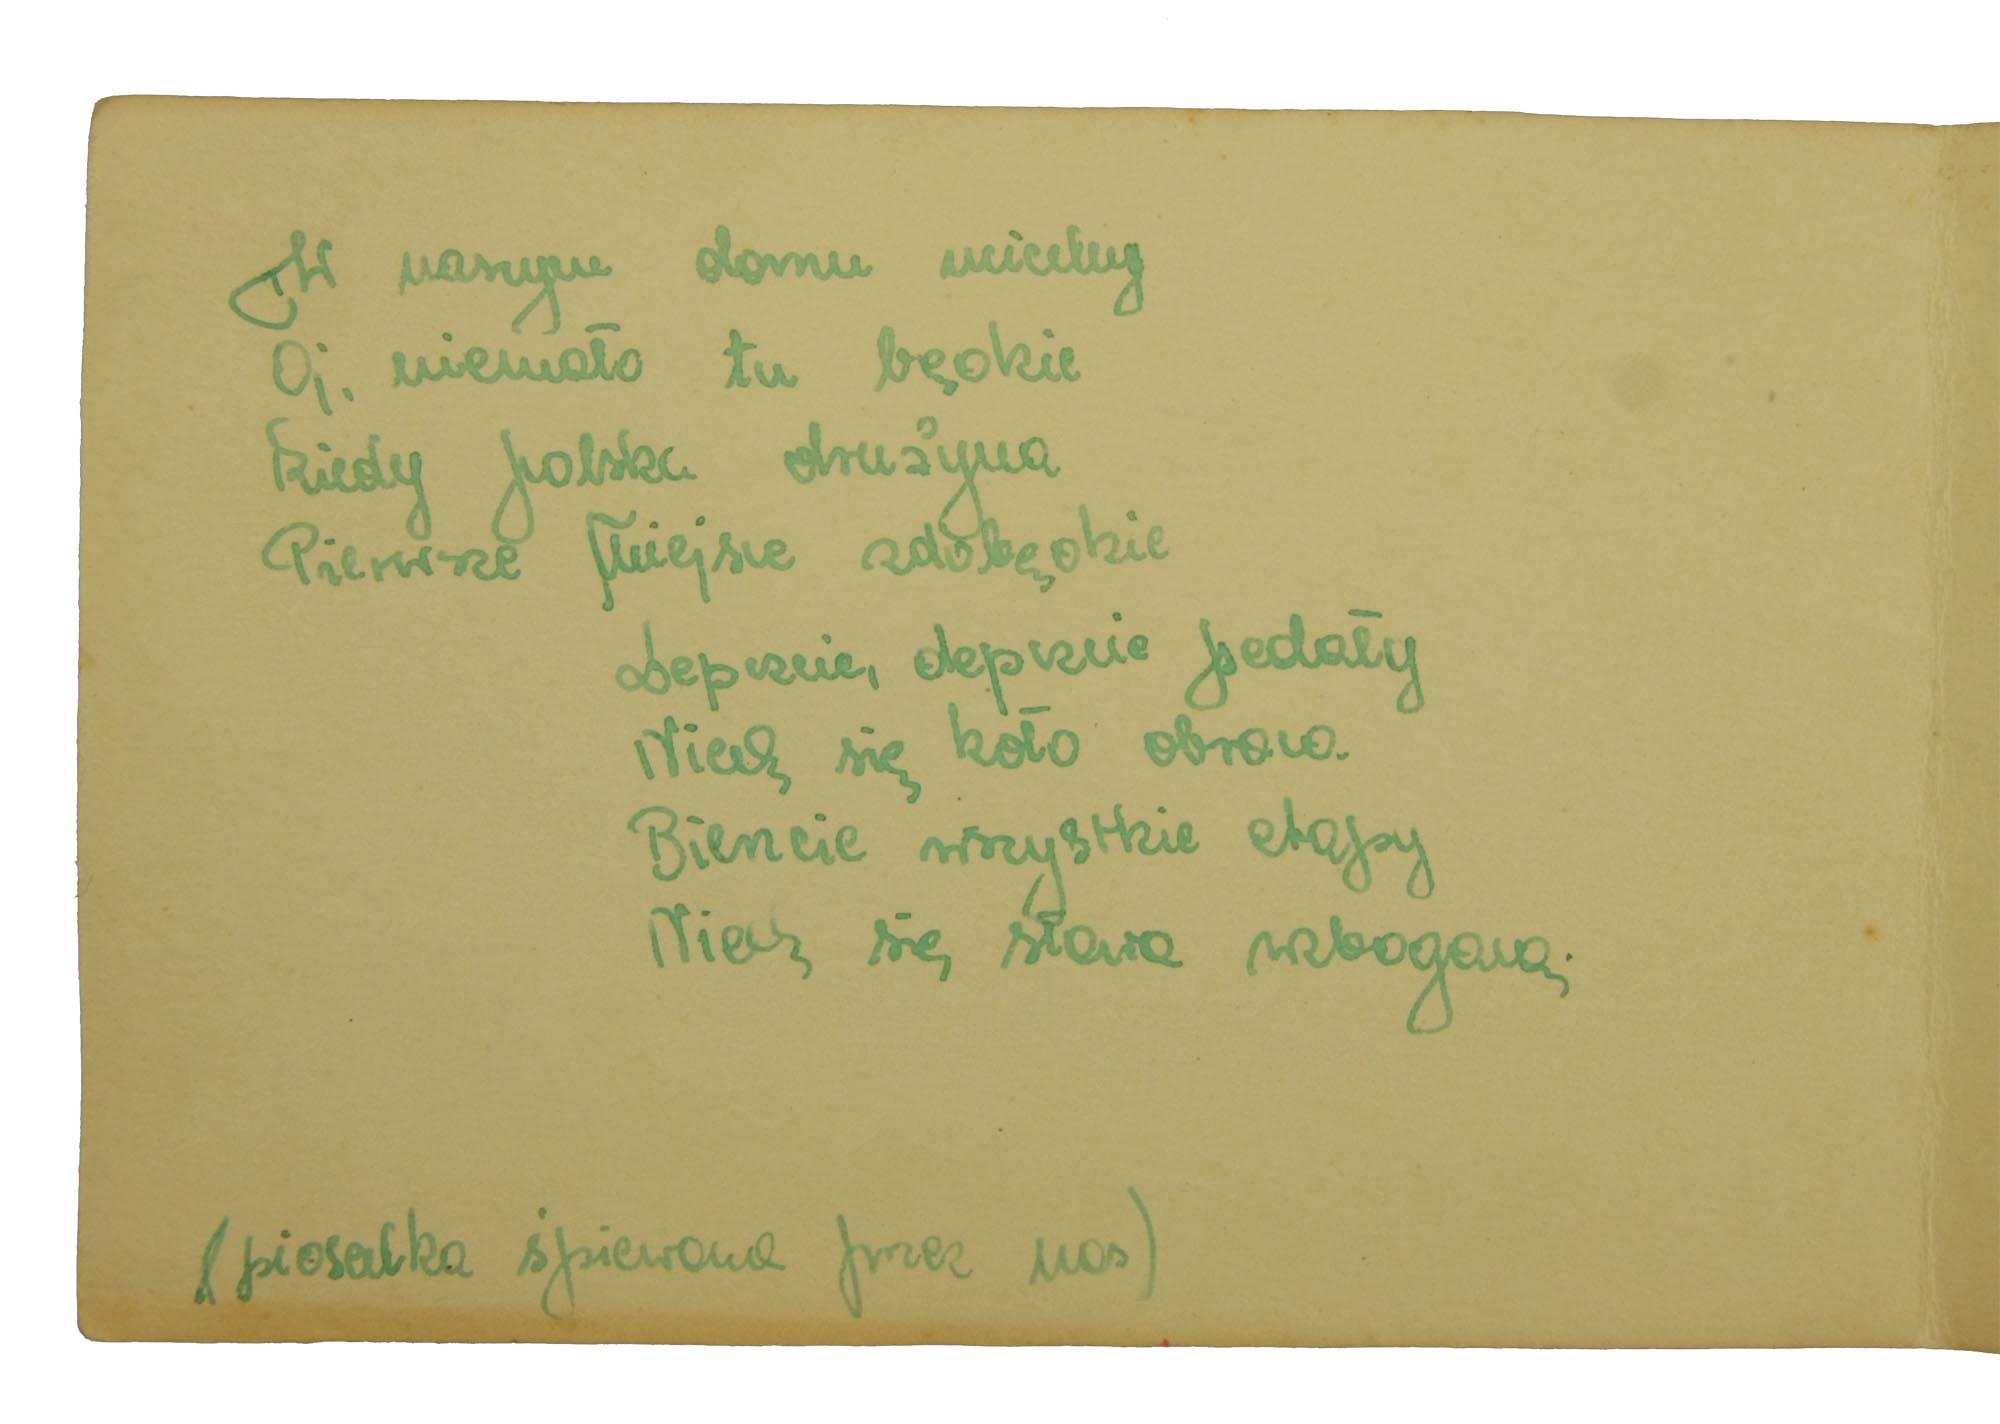 W naszym domu uciechy
Oj, niemało tu będzie
Kiedy polska drużyna
Pierwsze Miejsce zdobędzie
Depczcie, depczcie pedały
Niech się koło obraca
Bierzcie wszystkie etapy
Niech się sława wzbogaca.
(piosenka śpiewana przez nas)